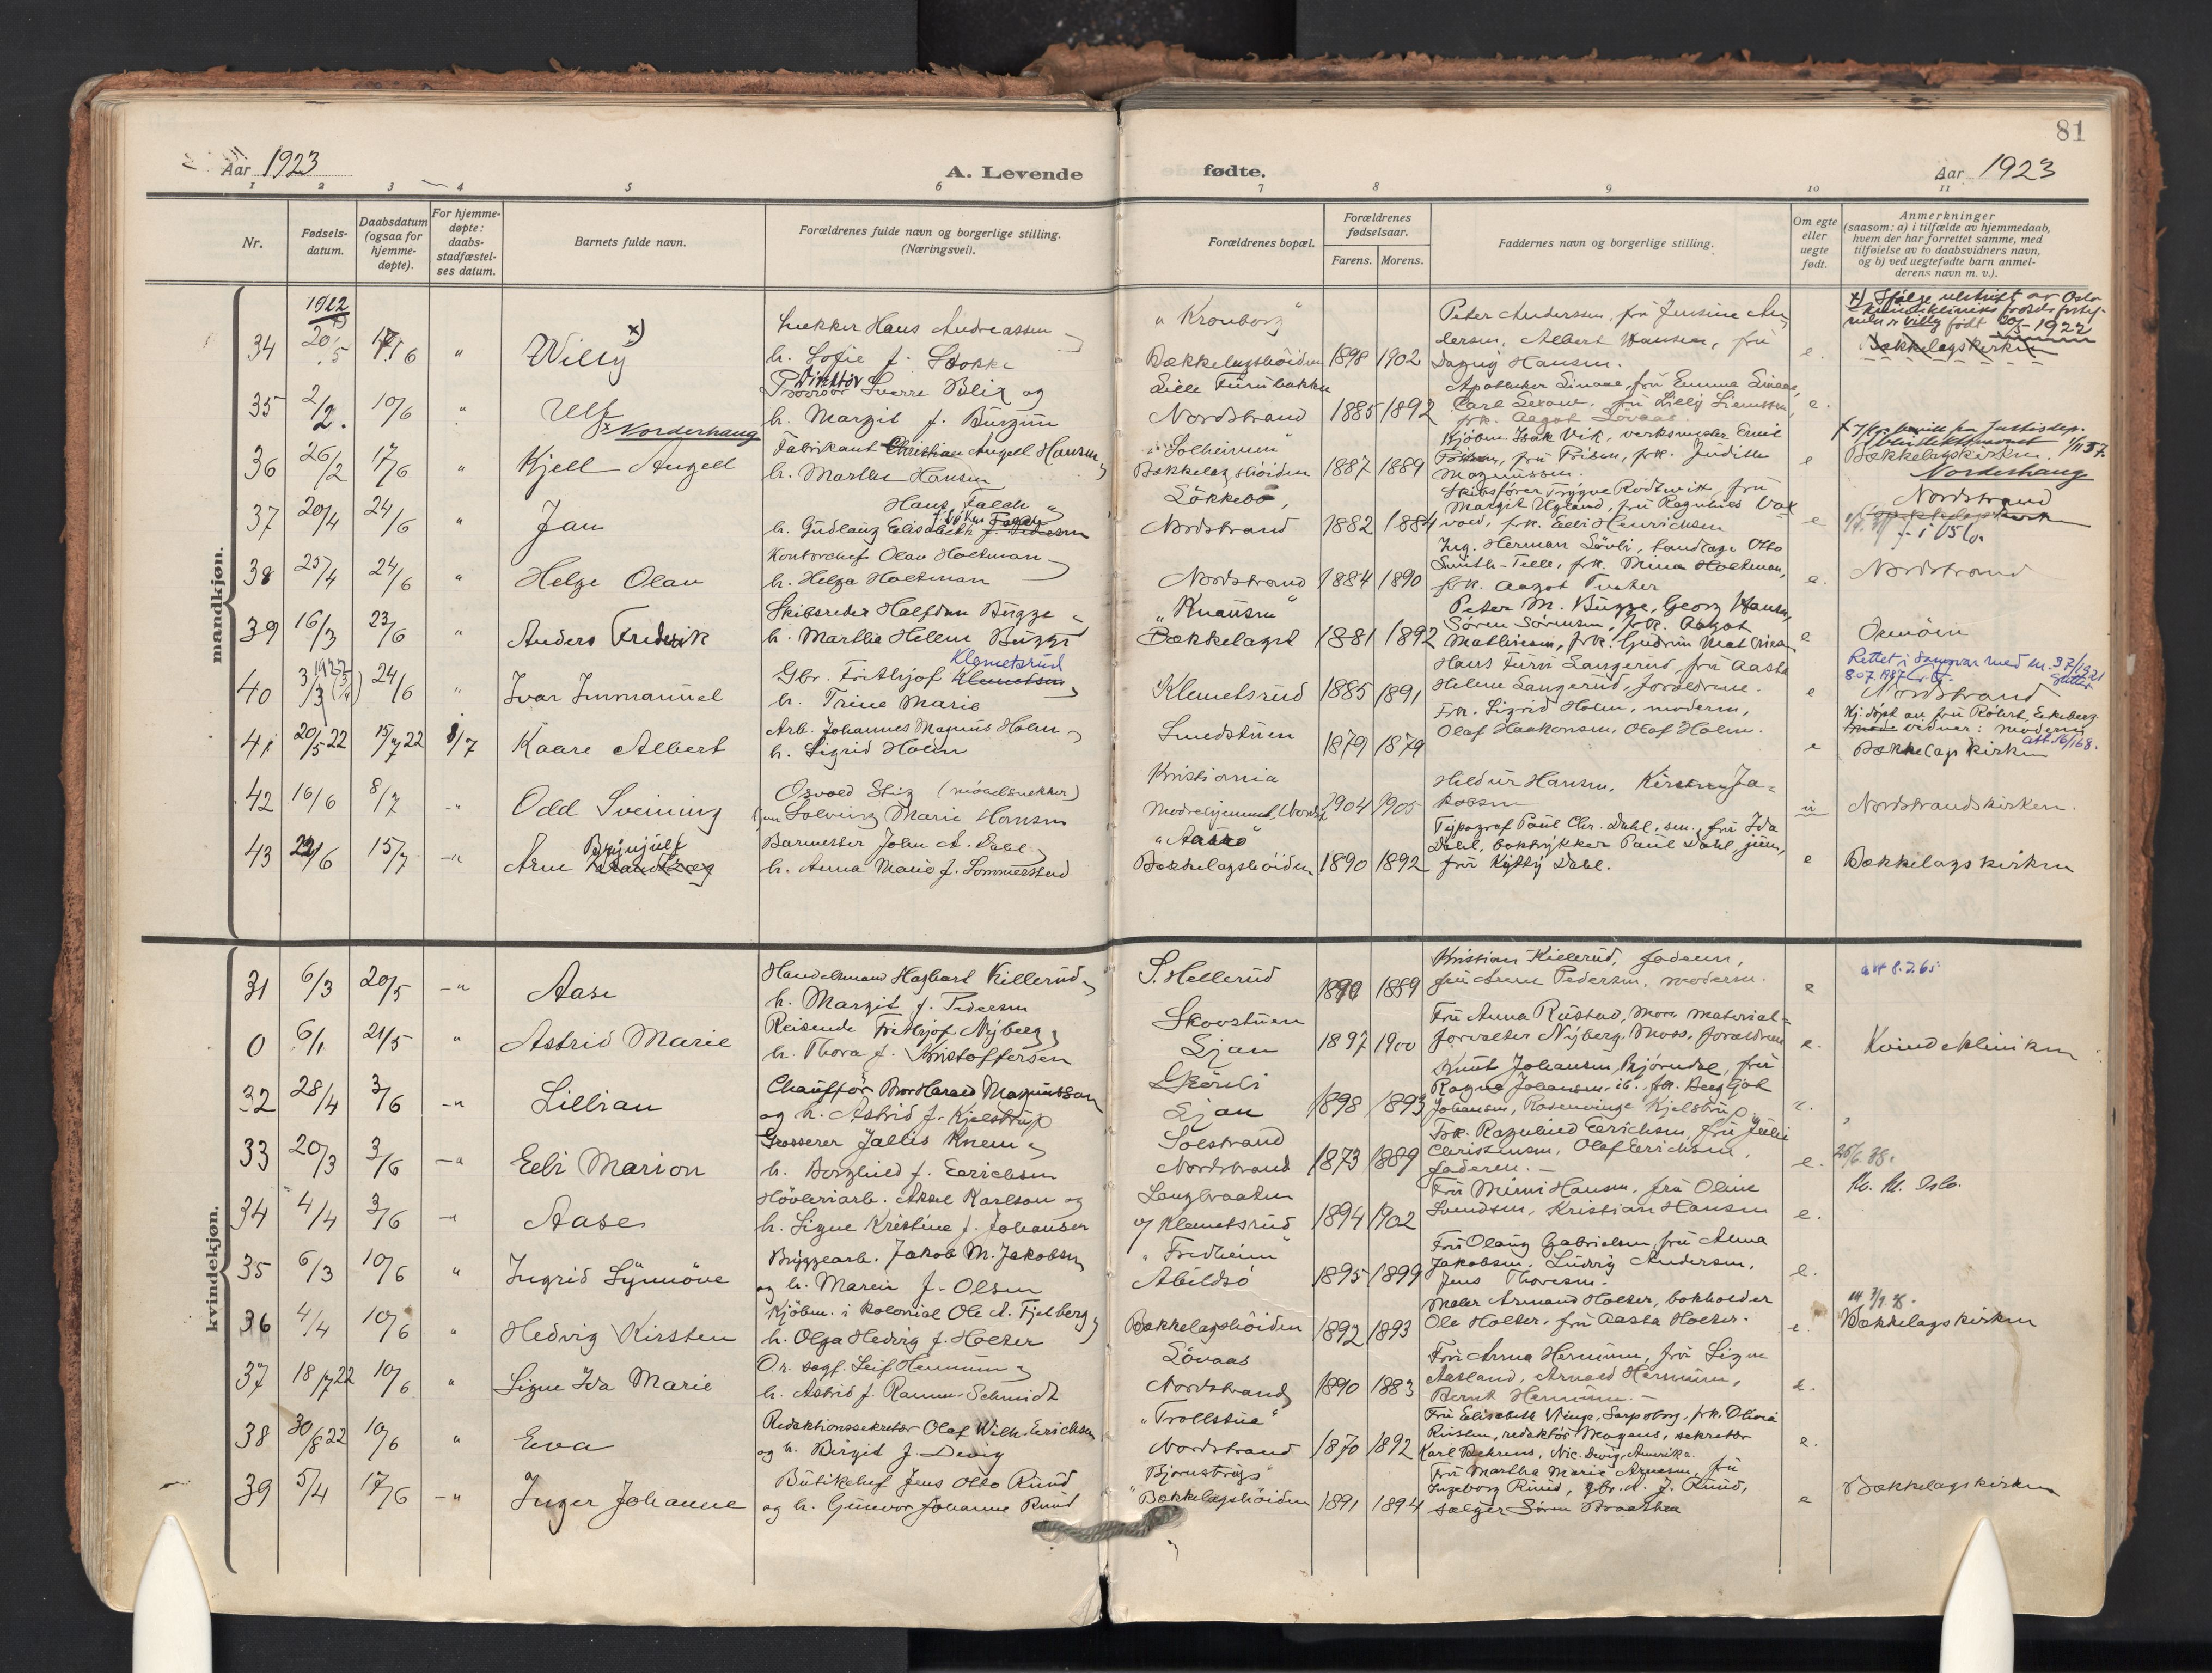 81
Aar 1923
A. Levende
fødte.
Aar 1923
1 2 3 4 5 6 7 8 9 10 11
Nr.
Fødsels-
datum.
Daabsdatum
(ogsaa for
hjemme-
døpte).
For hjemme-
døpte:
daabs-
stadfæstel-
ses datum.
Barnets fulde navn.
Forældrenes fulde navn og borgerlige stilling.
(Næringsvei).
Forældrenes bopæl.
Forældrenes
fødselsaar.
Farens. Morens.
Faddernes navn og borgerlige stilling.
Om egte
eller
uegte
født.
Anmerkninger
(saasom: a) i tilfælde av hjemmedaab,
hvem der har forrettet samme, med
tilføielse av to daabsvidners navn,
og b) ved uegtefødte barn anmel-
derens navn m. v.).
mandkjøn.
1922
34 20/5 17/6 " Willy x)
Snekker Hans Andreassen
h. Sofie f. Stokke
"Kronborg"
Bækkelagshöiden 1898 1902
Peter Andersen, fru Jensine An-
dersen, Albert Hansen, fru
Dagny Hansen.
e.
x) Ifölge utskrift av Oslo
født 20/5-1922
Bækkelagskirken
35 2/2. 10/6 " Ulf
Direktör Sverre Blix og
h. Margit f. Burgun
Lille Furubakken
Nordstrand 1885 1892
Apotheker Sinaae, fru Emma Sinaae,
Carl Sexane, fru Lilly Siemssen,
frk. Aagot Lövaas.
e.
36 26/2 17/6 " Kjell Angell x Norderhaug
Fabrikant Christian Angell Hansen
h. Marthe Hansen
"Solheimen"
Bækkelagshöiden 1887 1889
Kjöbm. Isak Vik, verksmester Emil
fru Frisen, frk. Judith
Magnussen.
e
Bækkelagskirken. 1/11 37.
Norderhaug
37 20/4 24/6 " Jan
Hans Faldh
h. Gudlaug Elisabeth f. Pedersen
Lökkebo,
Nordstrand 1882 1884
Skibsfører Trygve Rödtwitt fru
Margit Ugland, fru Ragnhild Vox
vold, frk. Elli Henrichsen
e
Nordstrand
f. i Oslo.
38 25/4 24/6 " Helge Olav
Kontorchef Olav Holtman
h. Helga Holtman
Nordstrand 1884 1890
Ing. Herman Lövli, tandlæge Otto
Smith-Tille, frk. Mina Holtman,
frk. Aagot
e.
Nordstrand
39 16/3 23/6 " Anders Frederik
Skibsreder Halfdan Bugge
h. Martha Helene Bugge
"Knausen"
Bækkelaget 1881 1892
Peter M. Bugge, Georg Hansen,
Sören Sörensen, frk. Aagot
Mathiesen, frk. Gudrun Mathiesen
e
Ormöen
40 3/3 24/6 " Ivar Immanuel
Gbr. Frithjof Klemetsen Klemetsrud
h. Trine Marie
Klemetsrud 1885 1891
Hans Furu Langerud, fru Aasta
Helene Langerud, foreldrene.
e
Rettet i samsvar med sk. 37/1921
Nordstrand
41 20/5 22 15/7 22 8/7 Kaare Albert
Arb. Johannes Magnus Holm
h. Sigrid Holm
Smedstuen
1879 1879
Frk. Sigrid Holm, moderen,
Olaf Haakonsen, Olaf Holm.
e
Hj. döpt av fru Röhrt, Ekeberg.
vidner: moderen
att 16/1 68.
Bækkelags kirken
42 16/6 8/7 " Odd Sveining
Osvald Stig (möbelsnekker)
Solveig Marie Hansen
Kristiania
Mödrehjemmet, Nordst. 1904 1905
Hildur Hansen, Kirsten Ja-
kobsen
u
Nordstrandskirken.
43 22/6 15/7 " Arne Brynjulf
Barmester John A. Dahl
h. Anna Marie f. Sommerstad
"Aasbo"
Bækkelagshöiden 1890 1892
Typograf Paul Chr. Dahl, sen., fru Ida
Dahl, boktrykker Paul Dahl, jun.,
fru Kitty Dahl.
e
Bækkelagskirken
kvindekjøn.
31 6/3 20/5 " Aase
Handelsmand Hagbart Killerud
h. Margit f. Pedersen
S. Hellerud
1890 1889
Kristian Killerud, faderen,
fru Anne Pedersen, moderen.
e
att 8.2.65
0 6/1 21/5 " Astrid Marie
Reisende Frithjof Nyberg
h. Thora f. Kristoffersen
Skovstuen
Ljan 1897 1900
Fru Anna Rustad, Moss material-
forvalter Nyberg, Moss, foreldrene
e.
Kvindekliniken
32 28/4 3/6 " Lillian
Chauffør Thor Harald Magnussen
og h. Astrid f. Kjelstrup
Ljan 1898 1893
Knut Johansen, Bjørndal, fru
Ragna Johansen, ib., frk. Bergljot
Johansen, Rosenvinge Kjelstrup
e.
33 20/3 3/6 " Elli Marion
Grosserer Jallis Knem
h. Borghild f. Erichsen
Solstrand
Nordstrand 1873 1889
Frk. Ragnhild Erichsen, fru Julie
Christensen, Olaf Erichsen,
faderen.
e.
25/6 38.
34 4/4 3/6 " Aase
Høvleriarb. Aksel Karlson og
h. Signe Kristine f. Johansen
Langbraaten
af Klemetsrud 1894 1902
Fru Mimi Hansen, fru Oline
Svendsen, Kristian Hansen
e.
Kv. kl. Oslo.
35 6/3 10/6 " Ingrid Synnöve
Bryggearb. Jakob M. Jakobsen
og h. Maren f. Olsen
"Fredheim"
Abildsö 1895 1899
Fru Olaug Gabrielsen, fru Anna
Jakobsen, Ludvig Andersen,
Jens Thoresen.
e.
36 4/4 10/6 " Hedvig Kirsten
Kjöbm. i kolonial Ole A. Fjelberg
h. Olga Hedvig f. Holter
Bækkelagshöiden 1892 1893
Maler Armand Holter, bokholder
Ole Holter, fru Aasta Holter.
e.
Bækkelagskirken
37 18/7 22 10/6 " Signe Ida Marie
O.r. sagf. Leif Hennum
h. Astrid f. Ramm-Schmidt
Lövaas
Nordstrand 1890 1883
Fru Anna Hennum, fru Signe
Aasland, Arnold Hennum,
Bernt Hennum.
e.
38 30/8 22 10/6 " Eva
Redaktionssekretær Olaf Wilh. Erichsen
og h. Birgit f. Dewig
"Trollstua"
Nordstrand 1870 1892
Fru Elisabeth Vinge, Sarpsborg, frk. Olivia
redaktör Mogens, sekretær
Karl Behrens, Nic. Dewig, Amerika.
e.
39 5/4 17/6 " Inger Johanne
Butikchef Jens Otto Ruud
og h. Gunvor Johanne Ruud
Bækkelagshöiden 1891 1894
Fru Martha Marie Arnesen, fru
Ingeborg Ruud, gbr. A. J. Ruud,
sælger Sören Braathen
e
Bækkelagskirken